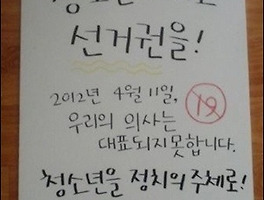 선거권을!
2012년 4월 11일,
19
우리의 의사는
대표되지 못합니다.
청소년을 정치의 주체로!